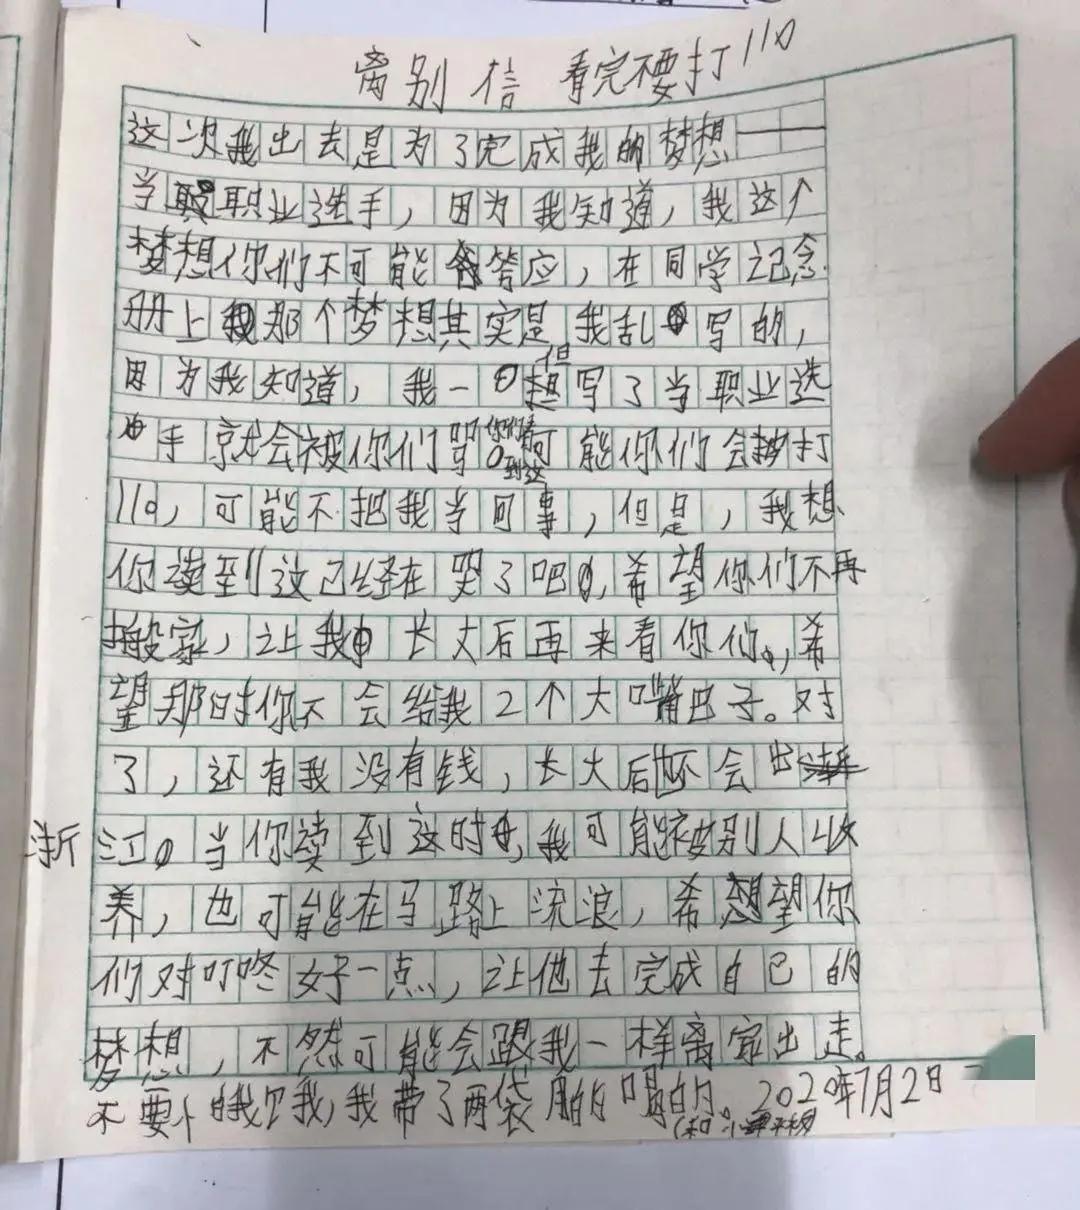 离别信 看完不要打110
这次我出去是为了完成我的梦想——
当职业选手，因为我知道，我这个
梦想你们不可能答应，在同学记念
册上我那个梦想其实是我乱写的，
因为我知道，我一但想写了当职业选
手就会被你们骂，你们看到这可能你们会打
110，可能不把我当回事，但是，我想
你读到这已经在哭了吧，希望你们不再
搬家，让我长大后再来看你们，希
望那时你不会给我2个大嘴巴子。对
了，还有我没有钱，长大后也不会出
浙江。当你读到这时，我可能被别人收
养，也可能在马路上流浪，希望你
们对叮咚好一点，让他去完成自己的
梦想，不然可能会跟我一样离家出走。
不要小我，我带了两袋的喝的。2020年7月2日